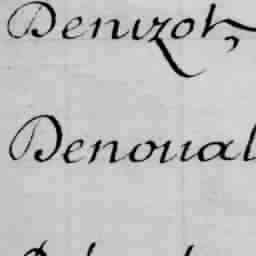 Denizot,
Denoual